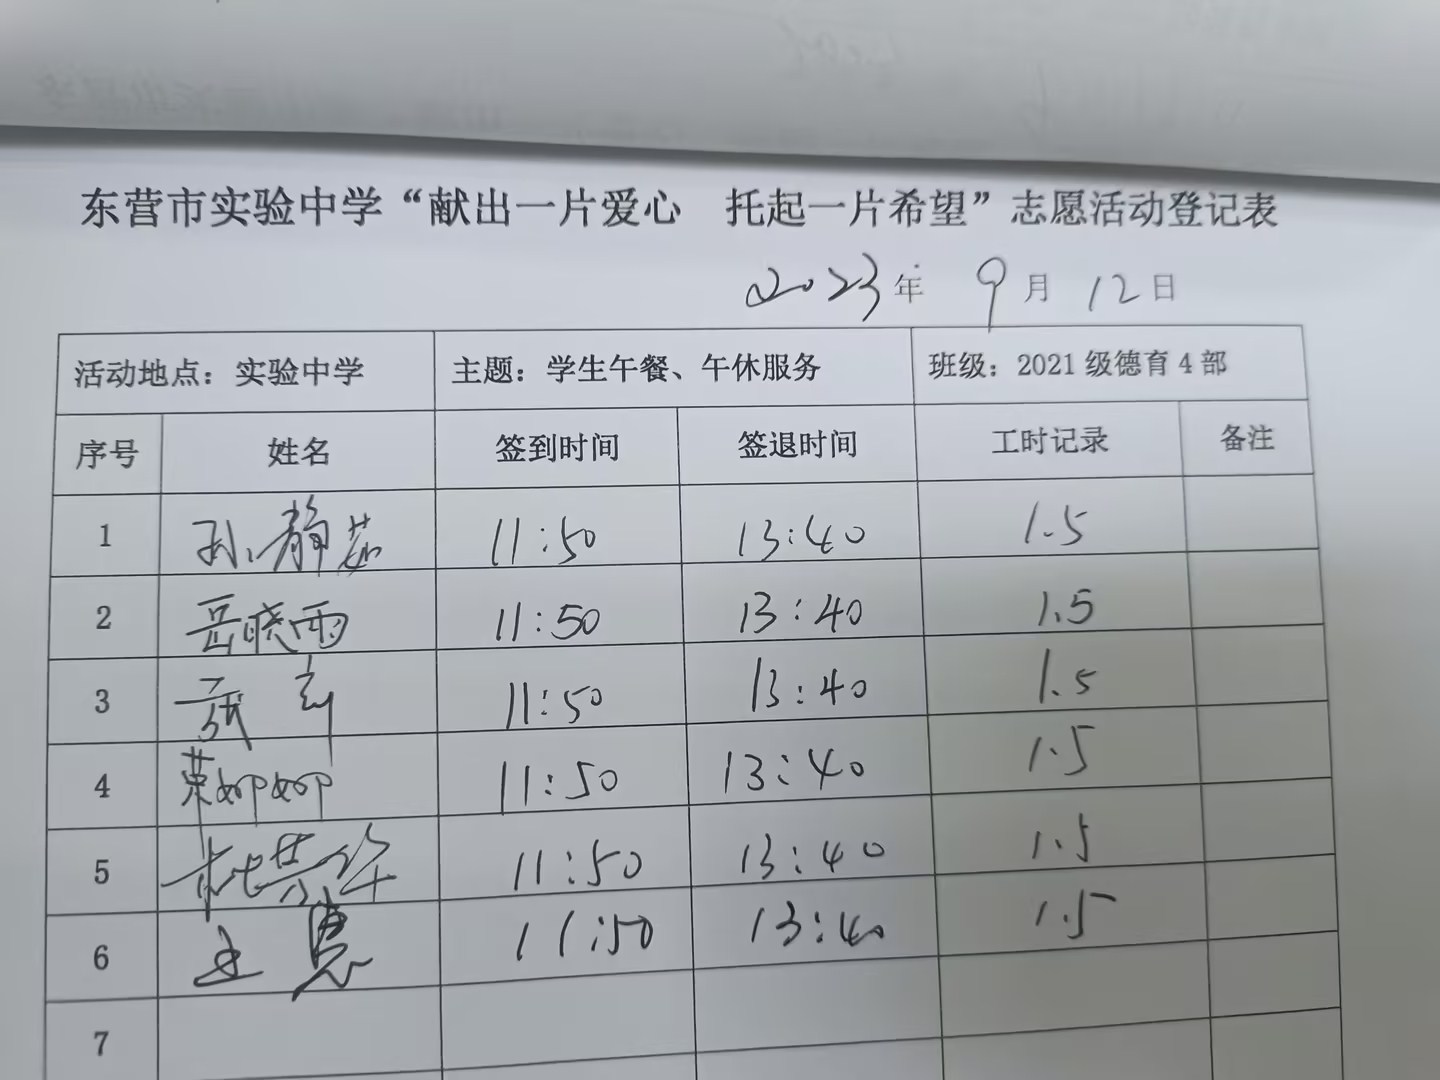 东营市实验中学“献出一片爱心　托起一片希望”志愿活动登记表
2023年 9月 12日
活动地点：实验中学 主题：学生午餐、午休服务 班级：2021级德育4部
序号 姓名 签到时间 签退时间 工时记录 备注
1 孙静茹 11:50 13:40 1.5
2 岳晓雨 11:50 13:40 1.5
3 11:50 13:40 1.5
4 荣娜娜 11:50 13:40 1.5
5 11:50 13:40 1.5
6 王惠 11:50 13:40 1.5
7